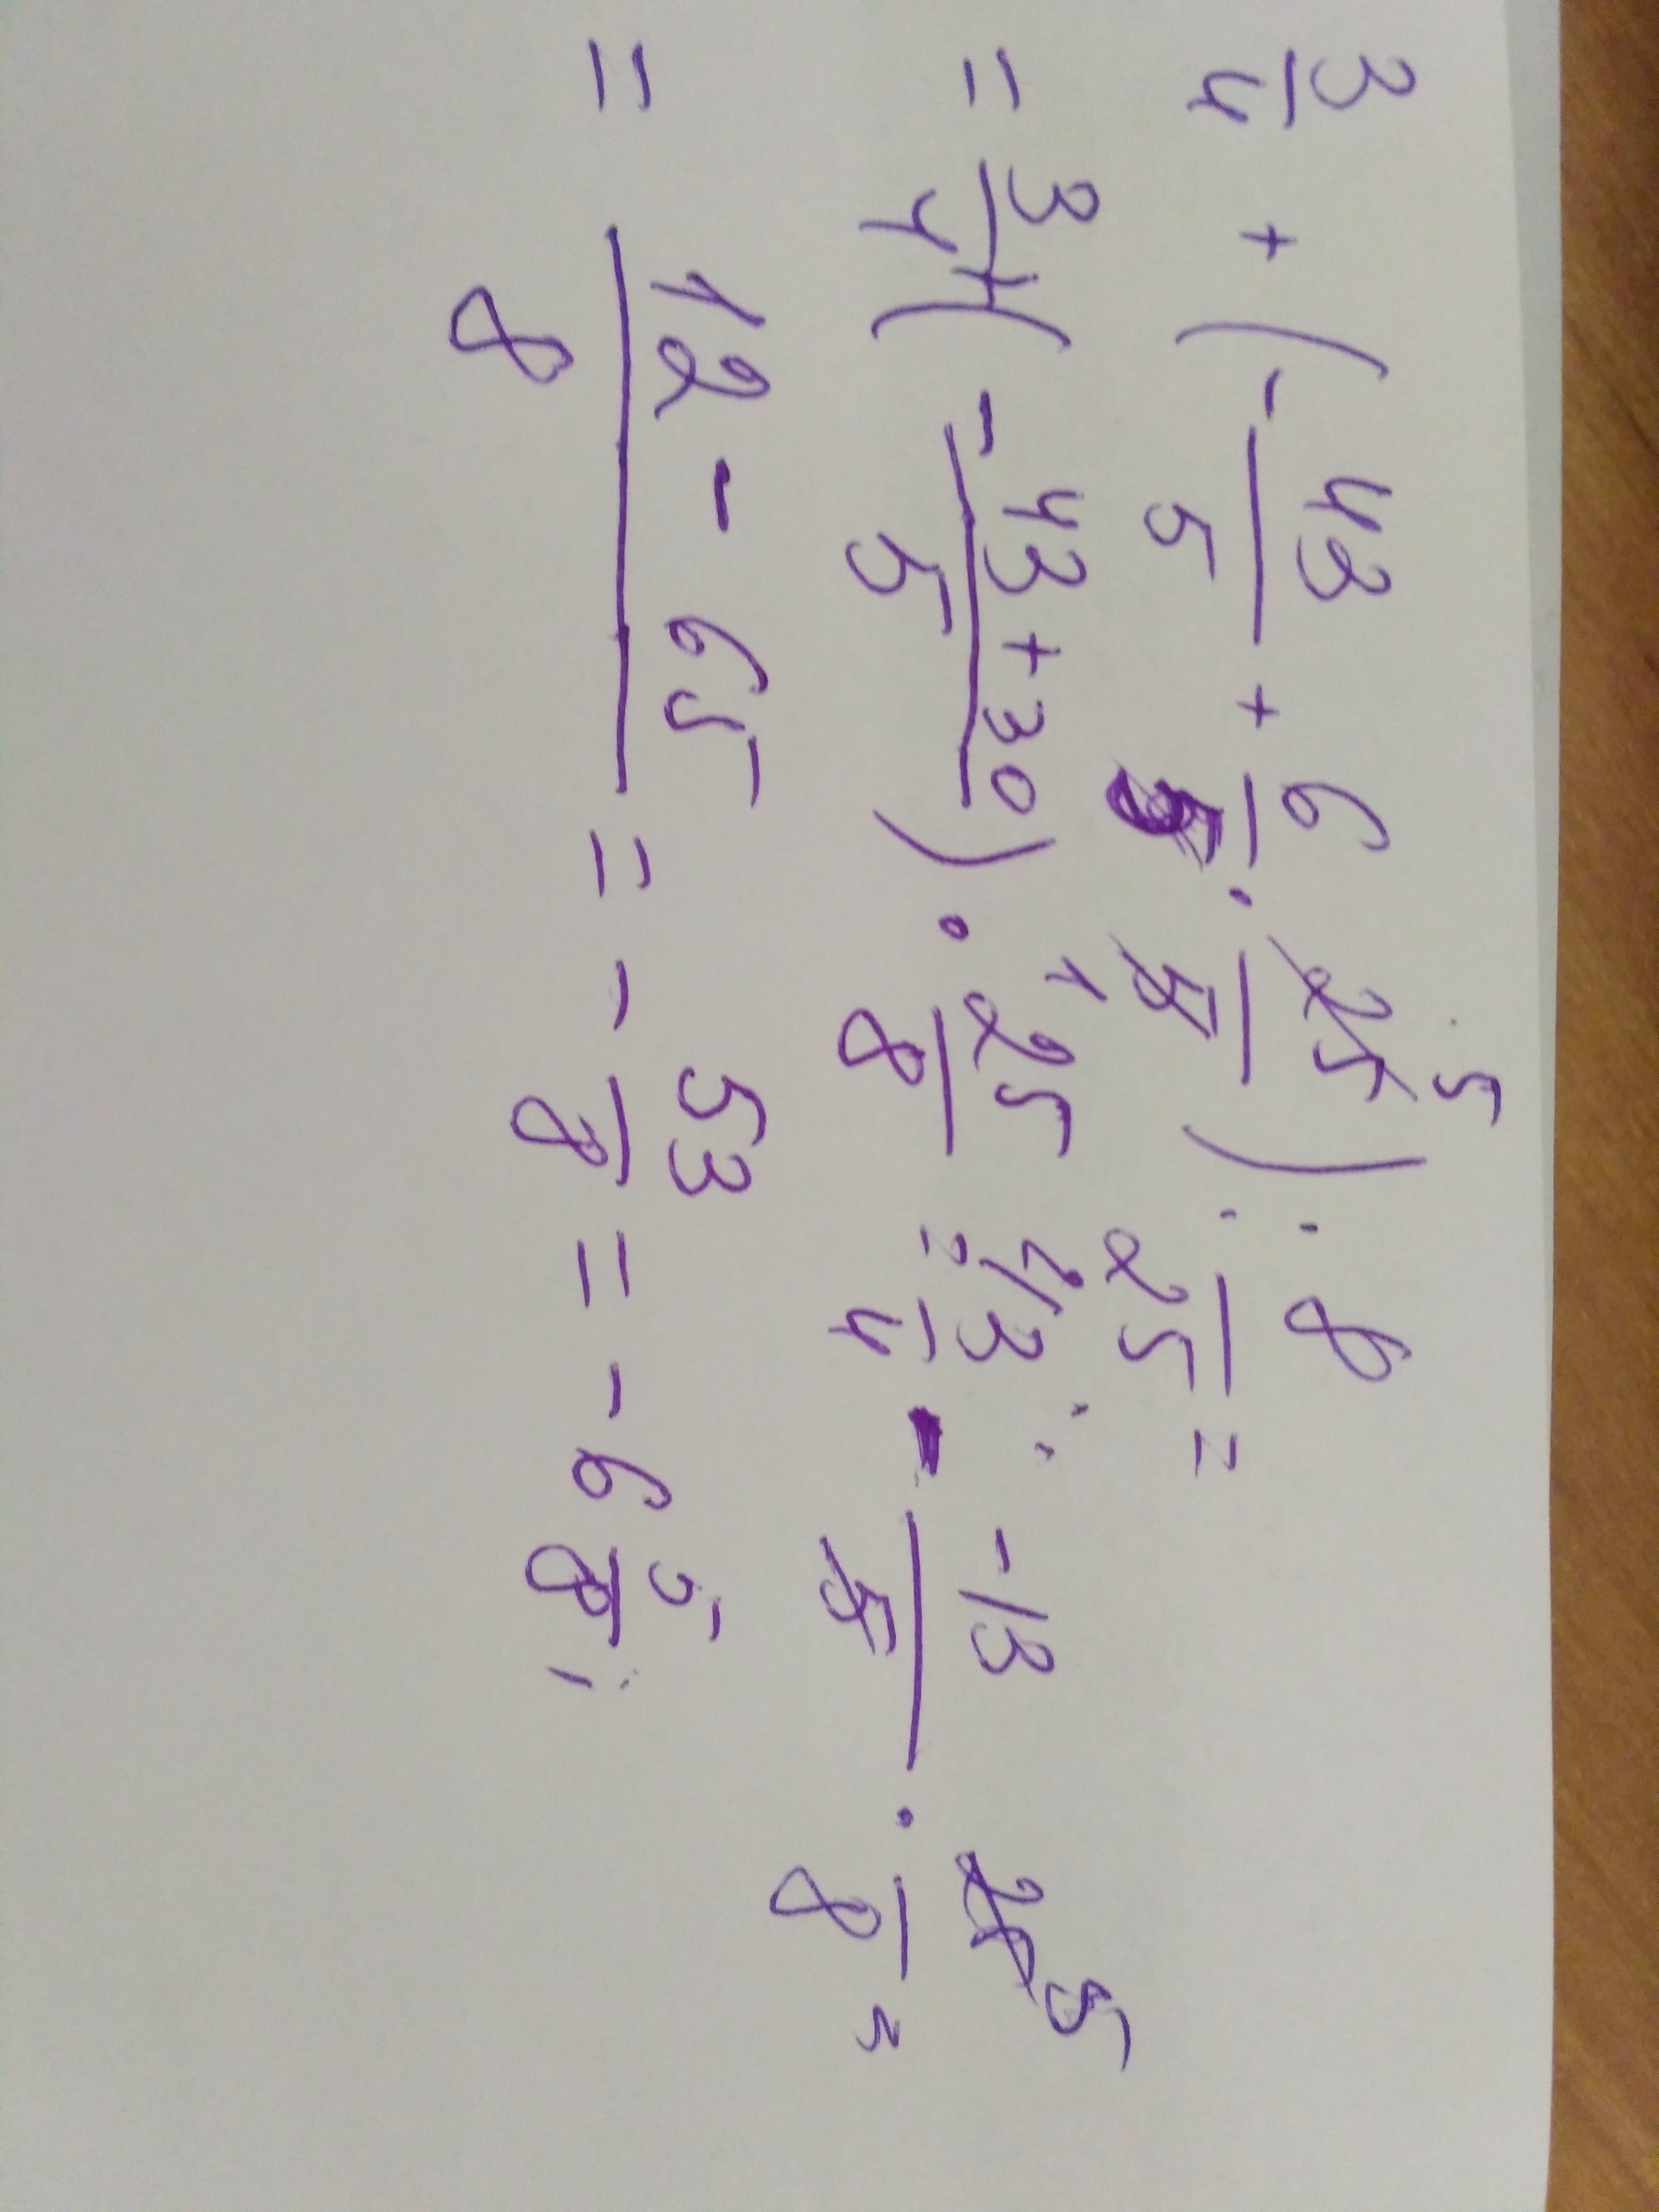 3/4 + (- 43/5 + 6/5 · 25/5 5 1) : 8/25 =
= 3/4 + (- 43 + 30/5) · 25/8 = 2/3/4 -13/5 · 25/8 5 =
= 12 - 65/8 = - 53/8 = - 6 5/8;